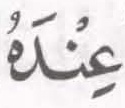 عِنْدَهُ